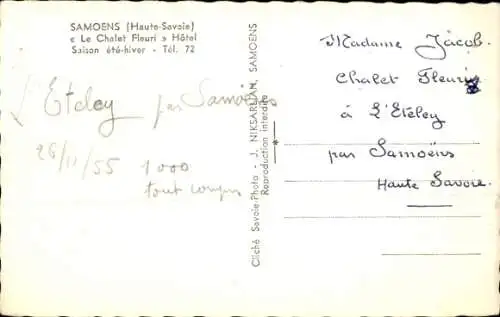 SAMOENS (Haute-Savoie)
« Le Chalet Fleuri » Hôtel
Saison été-hiver - Tél. 72
L'Eteley par Samoëns
26/11/55 1000
tout compris
Cliché Savoie-Photo - J. NIKSARLIAN, SAMOENS
Reproduction interdite
Madame Jacob.
Chalet Fleuri
à L'Eteley
par Samoëns
Haute Savoie.